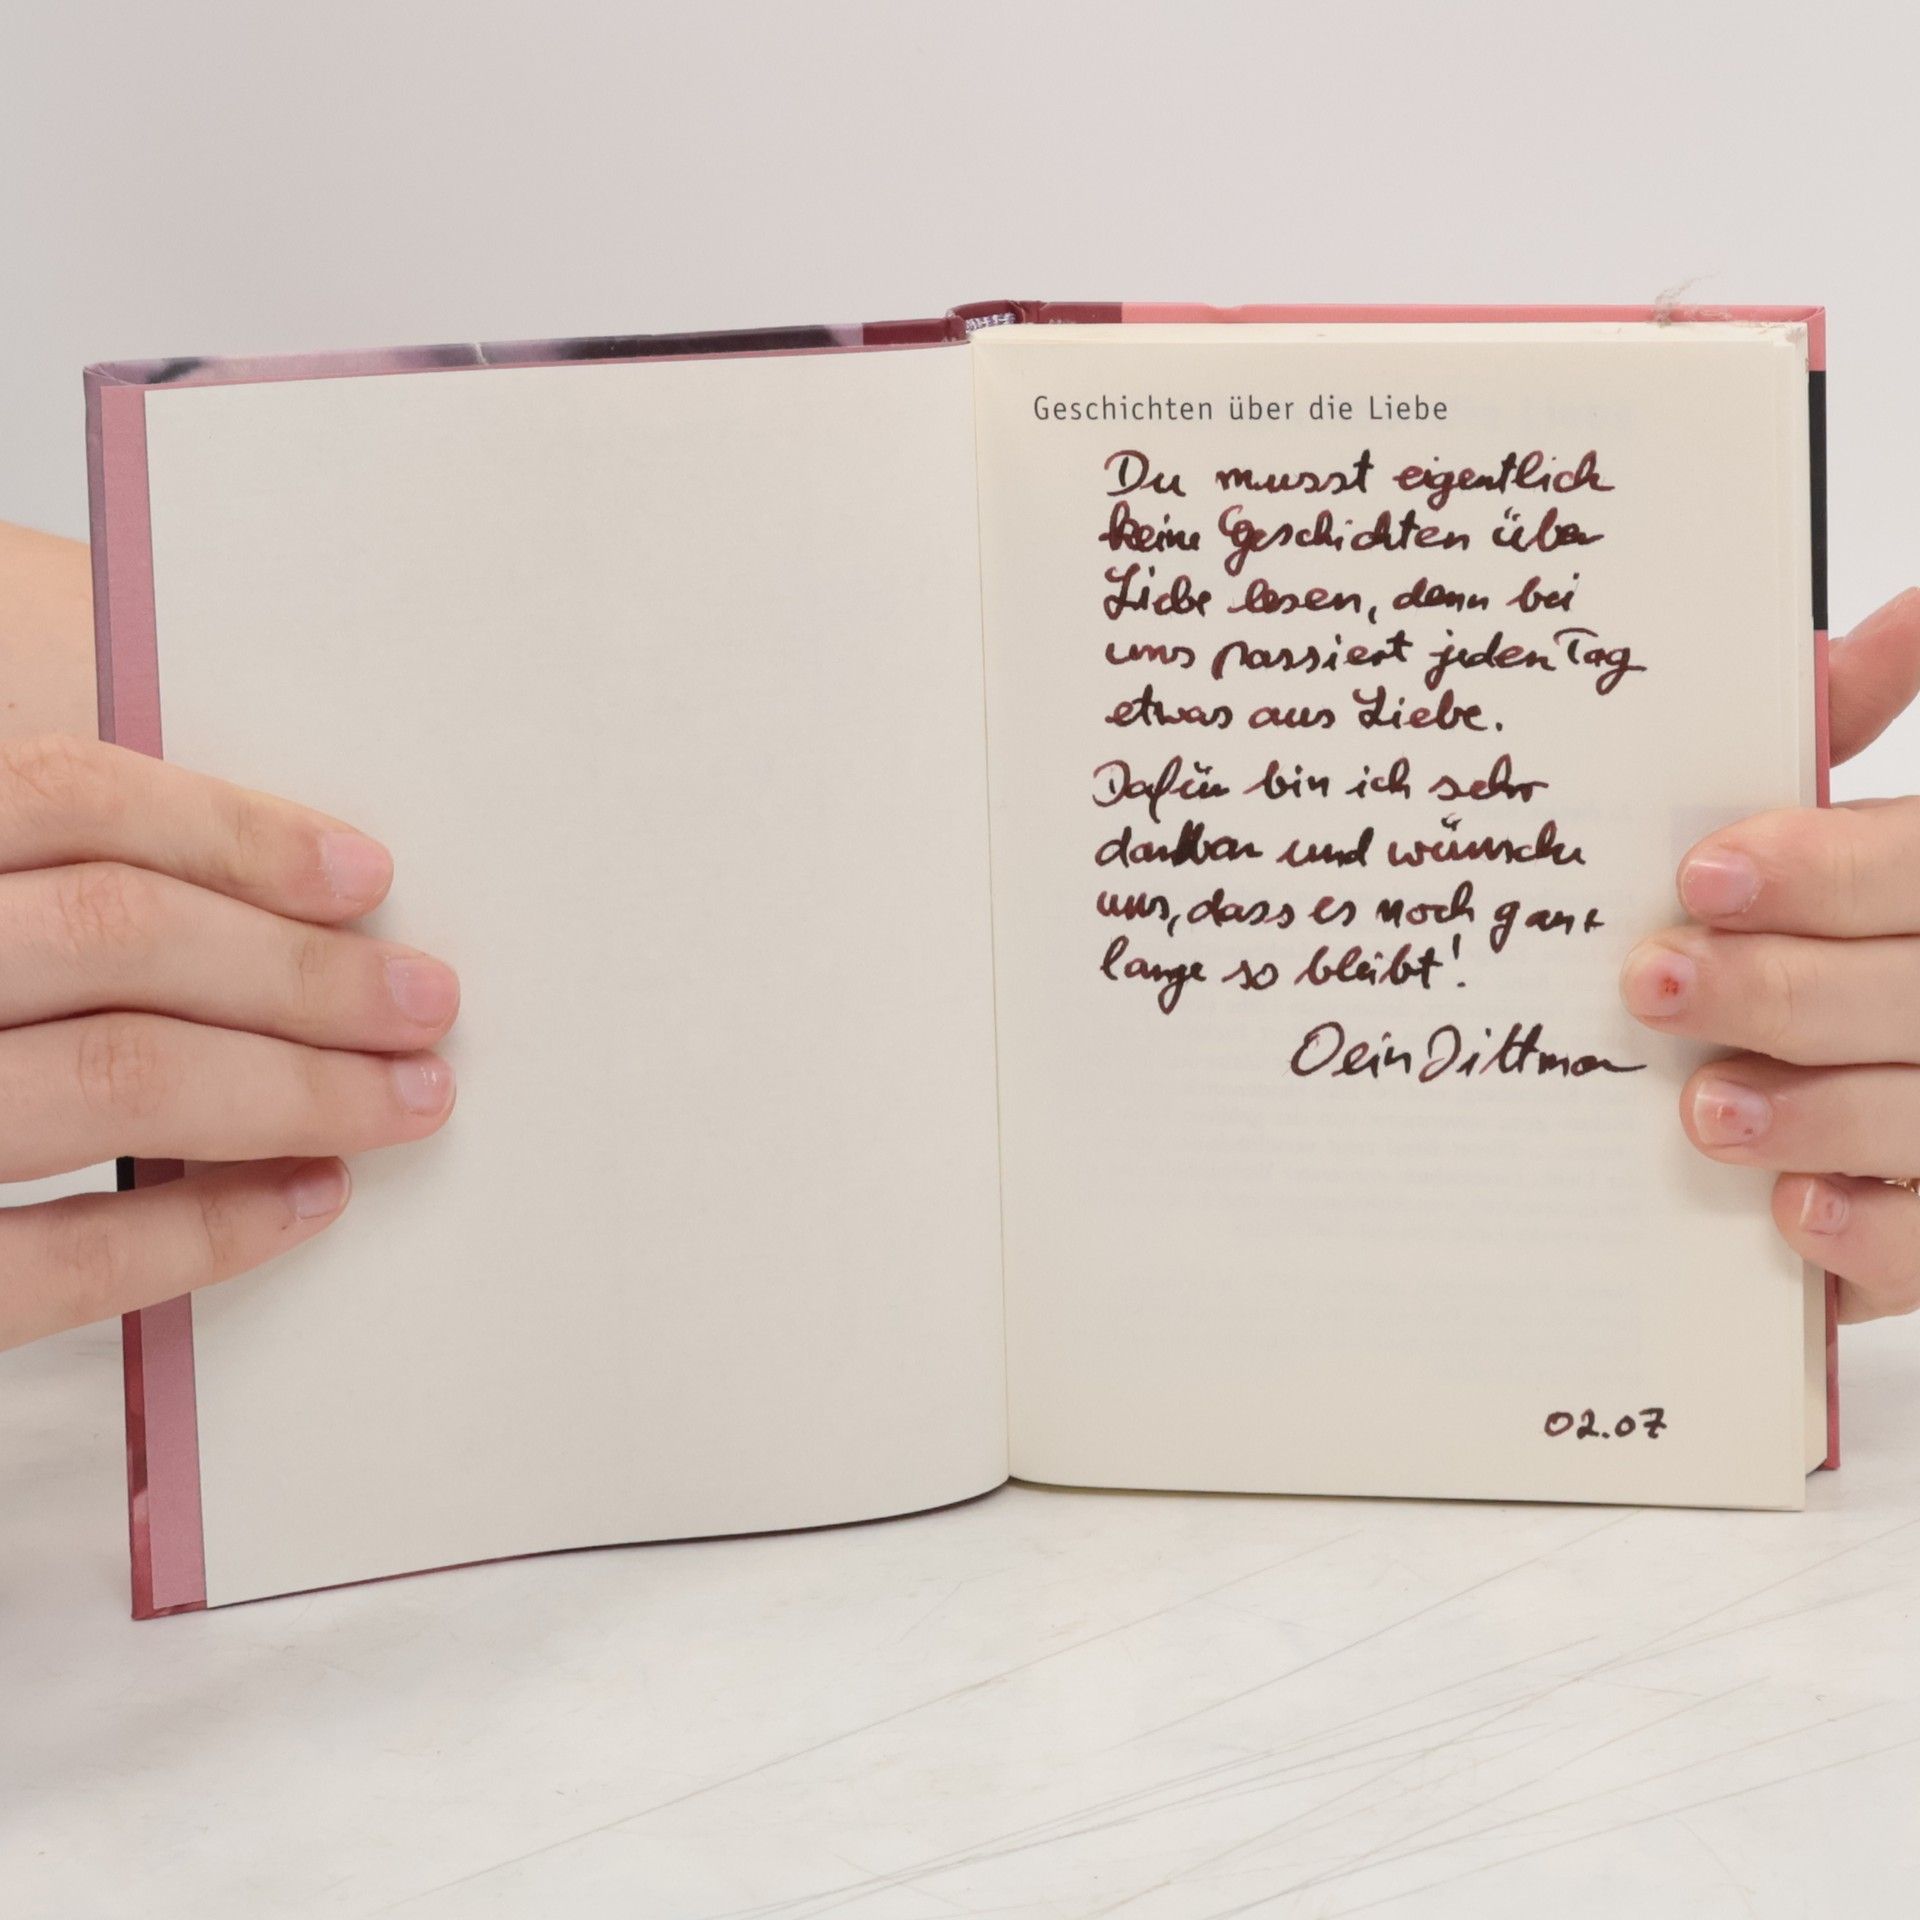 Geschichten über die Liebe
Du musst eigentlich
keine Geschichten über
Liebe lesen, denn bei
uns passiert jeden Tag
etwas aus Liebe.
Dafür bin ich sehr
dankbar und wünsche
uns, dass es noch ganz
lange so bleibt!
Dein Dittmar
02.07